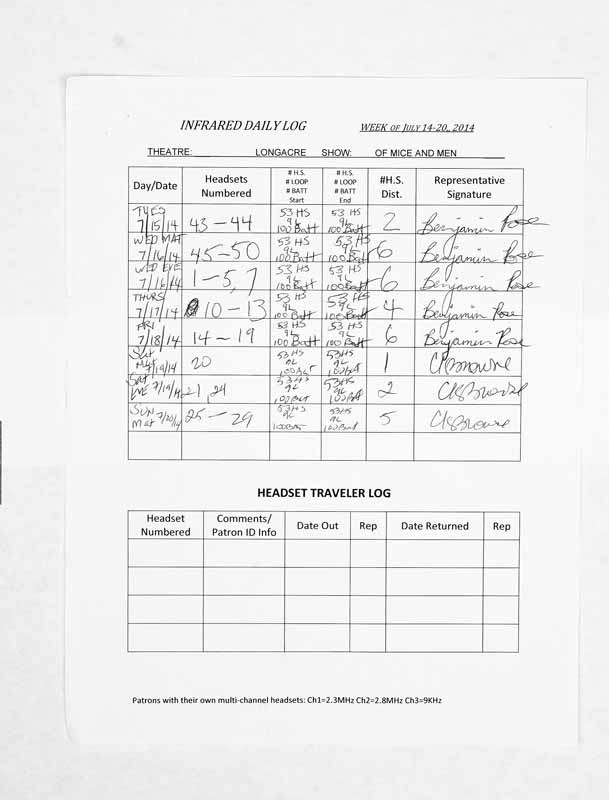 INFRARED DAILY LOG WEEK OF JULY 14-20, 2014
THEATRE: LONGACRE SHOW: OF MICE AND MEN
Day/Date Headsets Numbered # H.S. # LOOP # BATT Start # H.S. # LOOP # BATT End #H.S. Dist. Representative Signature
TUES 7/15/14 43 - 44 53 HS 9L 100 Batt 53 HS 9L 100 Batt 2 Benjamin Rose
WED MAT 7/16/14 45 - 50 53 HS 9L 100 Batt 53 HS 9L 100 Batt 6 Benjamin Rose
WED EVE 7/16/14 1 - 5, 7 53 HS 9L 100 Batt 53 HS 9L 100 Batt 6 Benjamin Rose
THURS 7/17/14 10 - 13 53 HS 9L 100 Batt 53 HS 9L 100 Batt 4 Benjamin Rose
FRI 7/18/14 14 - 19 53 HS 9L 100 Batt 53 HS 9L 100 Batt 6 Benjamin Rose
Sat Mat 7/19/14 20 53 HS 9L 100 Bat 53 HS 9L 100 Bat 1 CSBrowne
Sat EVE 7/19/14 21, 24 53 HS 9L 100 Bat 53 HS 9L 100 Bat 2 CSBrowne
SUN Mat 7/20/14 25 - 29 53 HS 9L 100 Bat 53 HS 9L 100 Bat 5 CSBrowne
HEADSET TRAVELER LOG
Headset Numbered Comments/ Patron ID Info Date Out Rep Date Returned Rep
Patrons with their own multi-channel headsets: Ch1=2.3MHz Ch2=2.8MHz Ch3=9KHz